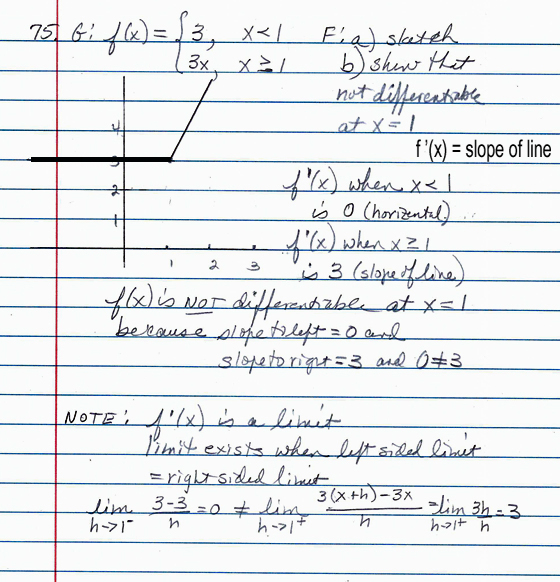 75. G: f(x) = { 3, x < 1 F: a) sketch
3x, x ≥ 1 b) show that
not differentiable
at x = 1
f'(x) = slope of line
4
3
2
1
1 2 3
f'(x) when x < 1
is 0 (horizontal)
f'(x) when x ≥ 1
is 3 (slope of line)
f(x) is NOT differentiable at x = 1
because slope to left = 0 and
slope to right = 3 and 0 ≠ 3
NOTE: f'(x) is a limit
limit exists when left sided limit
= right sided limit
lim h→1⁻ (3-3)/h = 0 ≠ lim h→1⁺ (3(x+h) - 3x)/h = lim h→1⁺ 3h/h = 3